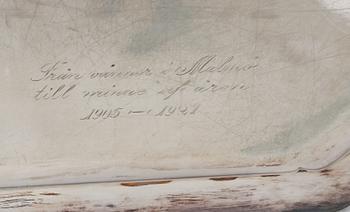 Från vänner i Malmö
till minne af åren
1905 — 1921